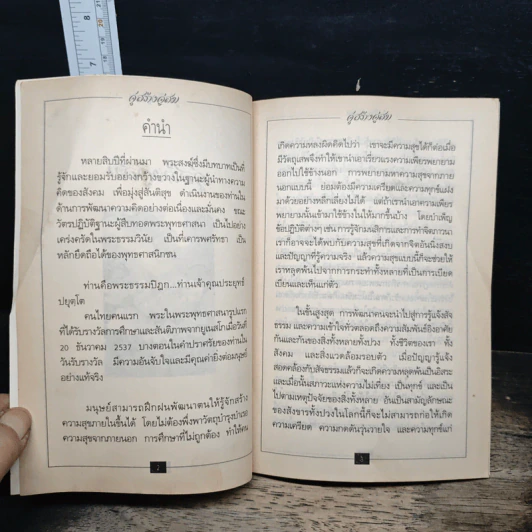 คู่สร้างคู่สม
คำนำ
หลายสิบปีที่ผ่านมา พระสงฆ์ซึ่งมีบทบาทเป็นที่
รู้จักและยอมรับอย่างกว้างขวางในฐานะผู้นำทางความ
คิดของสังคม เพื่อมุ่งสู่สันติสุข ดำเนินงานของท่านใน
ด้านการพัฒนาความคิดอย่างต่อเนื่องและมั่นคง ขณะ
วัตรปฏิบัติฐานะผู้สืบทอดพระพุทธศาสนา เป็นไปอย่าง
เคร่งครัดในพระธรรมวินัย เป็นที่เคารพศรัทธา เป็น
หลักยึดถือได้ของพุทธศาสนิกชน
ท่านคือพระธรรมปิฎก...ท่านเจ้าคุณประยุทธ์
ปยุตฺโต
คนไทยคนแรก พระในพระพุทธศาสนารูปแรก
ที่ได้รับรางวัลการศึกษาและสันติภาพจากยูเนสโกเมื่อวันที่
20 ธันวาคม 2537 บางตอนในคำปราศรัยของท่าน
วันรับรางวัล มีความอันจับใจและมีคุณค่ายิ่งต่อมนุษย์
อย่างแท้จริง
มนุษย์สามารถฝึกฝนพัฒนาตนให้รู้จักสร้าง
ความสุขภายในขึ้นได้ โดยไม่ต้องพึ่งพาวัตถุบำรุงบำเรอ
ความสุขจากภายนอก การศึกษาที่ไม่ถูกต้อง ทำให้คน
2
คู่สร้างคู่สม
เกิดความหลงผิดคิดไปว่า เขาจะมีความสุขได้ก็ต่อเมื่อ
มีวัตถุเสพจึงทำให้เขานำเอาเรี่ยวแรงความเพียรพยายาม
ออกไปใช้ข้างนอก การพยายามหาความสุขจากภาย
นอกแบบนี้ ย่อมต้องมีความเครียดและความทุกข์แฝง
มาด้วยอย่างหลีกเลี่ยงไม่ได้ แต่ถ้าเรานำเอาความเพียร
พยายามนั้นเข้ามาใช้ข้างในให้มากขึ้นบ้าง โดยบำเพ็ญ
ข้อปฏิบัติต่างๆ เช่น การรู้จักเมสสิการและการทำจิตภาวนา
เราก็อาจจะได้พบกับความสุขที่เกิดจากจิตอันนิ่งสงบ
และปัญญาที่รู้ความจริง แล้วความสุขแบบนี้ก็จะช่วยให้
เราหลุดพ้นไปจากการกระทำทั้งหลายที่เป็นการเบียด
เบียนและเห็นแก่ตัว
ในขั้นสูงสุด การพัฒนาคนจะนำไปสู่การรู้แจ้งสัจ
ธรรม และความเข้าใจทั่วตลอดถึงความสัมพันธ์อิงอาศัย
กันและกันของสิ่งทั้งหลายทั้งปวง ทั้งชีวิตของเรา ทั้ง
สังคม และสิ่งแวดล้อมรอบตัว เมื่อปัญญารู้แจ้ง
สอดคล้องกับสัจธรรมแล้วก็จะเกิดความหลุดพ้นเป็นอิสระ
และเมื่อนั้นสภาวะแห่งความไม่เที่ยง เป็นทุกข์ และเป็น
ไปตามเหตุปัจจัยของสิ่งทั้งหลาย อันเป็นสามัญลักษณะ
ของสังขารทั้งปวงในโลกนี้ก็จะไม่สามารถก่อให้เกิด
ความเครียด ความกดดันวุ่นวายใจ และความทุกข์แก่
3